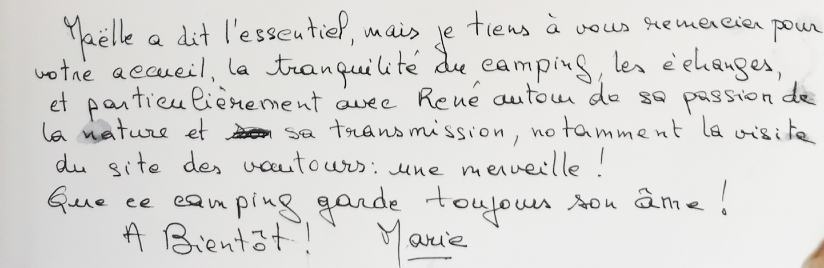 Maëlle a dit l'essentiel, mais je tiens à vous remercier pour
votre accueil, la tranquilité du camping, les échanges,
et particulièrement avec René autour de sa passion de
la nature et sa transmission, notamment la visite
du site des vautours : une merveille !
Que ce camping garde toujours son âme !
A Bientôt ! Marie